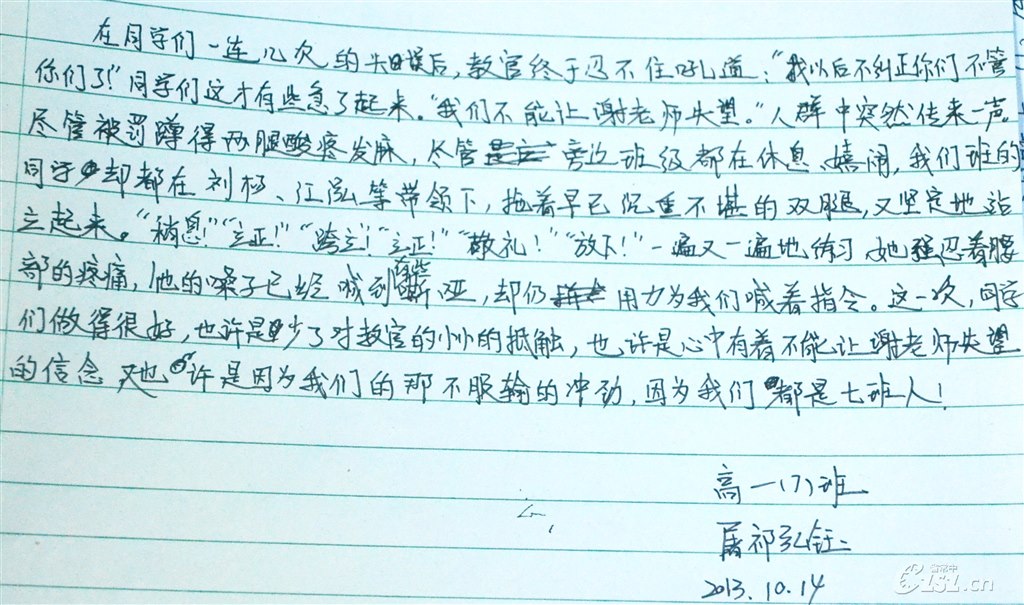 在同学们一连几次的失误后，教官终于忍不住吼道："我以后不纠正你们不管
你们了！"同学们这才有些急了起来。"我们不能让谢老师失望。"人群中突然传来一声
尽管被罚蹲得两腿酸疼发麻，尽管旁边班级都在休息、嬉闹，我们班的
同学却都在刘杨、江泓等带领下，拖着早已沉重不堪的双腿，又坚定地站
立起来。"稍息！""立正！""跨立！""立正！""敬礼！""放下！"一遍又一遍地练习，她强忍着腰
部的疼痛，他的嗓子已经喊到有些嘶哑，却仍用力为我们喊着指令。这一次，同学
们做得很好，也许是少了对教官的小小的抵触，也许是心中有着不能让谢老师失望
的信念 又也许是因为我们的那不服输的冲劲，因为我们都是七班人！
高一(7)班
屠祁弘钰
2013.10.14
151.cn